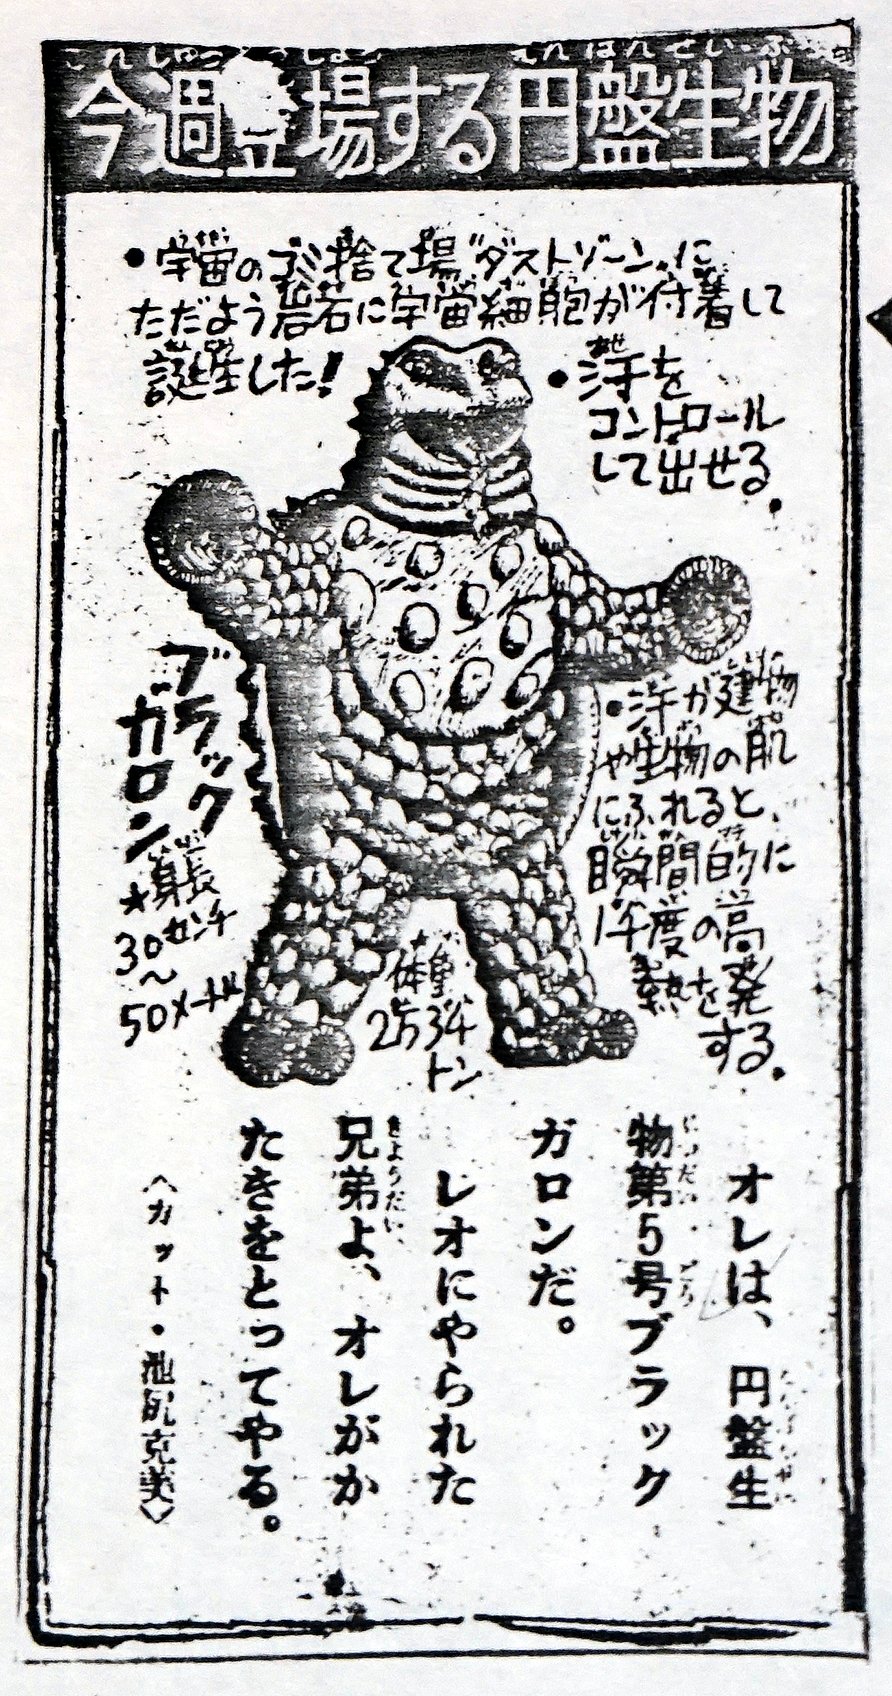 今週登場する円盤生物
•宇宙のゴミ捨て場“ダストゾーン„に
ただよう岩石に宇宙細胞が付着して
誕生した!
•汗を
コントロール
して出せる。
ブラック
ガロン
★身長
30センチ
〜
50メートル
体重
2万34
トン
•汗が建物
や生物の肌
にふれると、
瞬間的に
1千度の高
熱を発
する。
オレは、円盤生
物第5号ブラック
ガロンだ。
レオにやられた
兄弟よ、オレがか
たきをとってやる。
〈カット・池尻克美〉